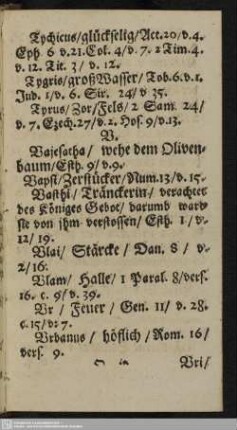 Tychicus/glückselig/Act.20/v.4.
Eph 6 v.21.Col. 4/v. 7. 2 Tim.4.
v.12. Tit. 3/ v. 12.
Tygris/groß Wasser/ Tob.6.v.1.
Jud. 1/v. 6. Sir. 24/ v 35.
Tyrus/Zor/Fels/ 2 Sam. 24/
v. 7. Ezech.27/v.2. Hos. 9/v.13.
V.
Vajesatha/ wehe dem Oliven-
baum/Esth. 9/v.9.
Vapsi/Zerstücker/Num.13/v.15.
Vasthi/ Tränckerin/ verachtet
des Königes Gebot/ darumb ward
sie von jhm verstossen/ Esth. 1/v.
12/ 19.
Vlai/ Stärcke/ Dan. 8/ v.
2/16.
Vlam/ Halle/ 1 Paral. 8/vers.
16. c. 9/ v. 39.
Vr / Feuer/ Gen. 11/ v. 28.
c.15/v. 7.
Vrbanus/ höflich/Rom. 16/
vers. 9.
Vri/